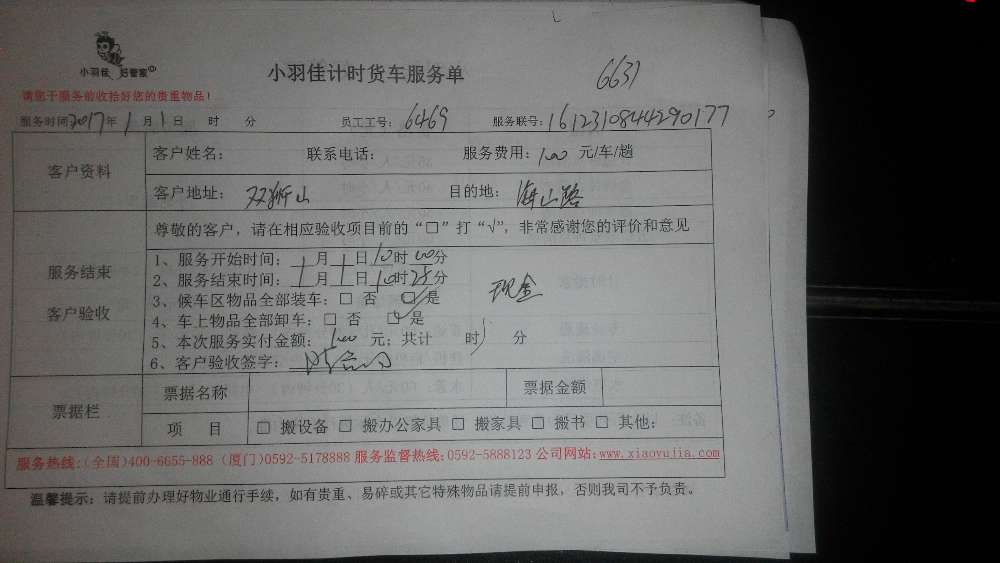 小羽佳 好管家
小羽佳计时货车服务单
6631
请您于服务前收拾好您的贵重物品！
服务时间2017年1月1日 时 分 员工工号：6469 服务联号：1612310844290177
客户资料
客户姓名： 联系电话： 服务费用：100 元/车/趟
客户地址：双狮山 目的地：海山路
服务结束
客户验收
尊敬的客户，请在相应验收项目前的“□”打“√”，非常感谢您的评价和意见
1、服务开始时间： 月 日10时00分
2、服务结束时间： 月 日10时25分
3、候车区物品全部装车：□ 否 ☑是
现金
4、车上物品全部卸车：□ 否 ☑是
5、本次服务实付金额：100 元；共计 时 分
6、客户验收签字：
票据栏
票据名称 票据金额
项 目 □ 搬设备 □ 搬办公家具 □ 搬家具 □ 搬书 □ 其他：
服务热线：(全国)400-6655-888 (厦门)0592-5178888 服务监督热线：0592-5888123 公司网站：www.xiaoyujia.com
温馨提示：请提前办理好物业通行手续，如有贵重、易碎或其它特殊物品请提前申报，否则我司不予负责。